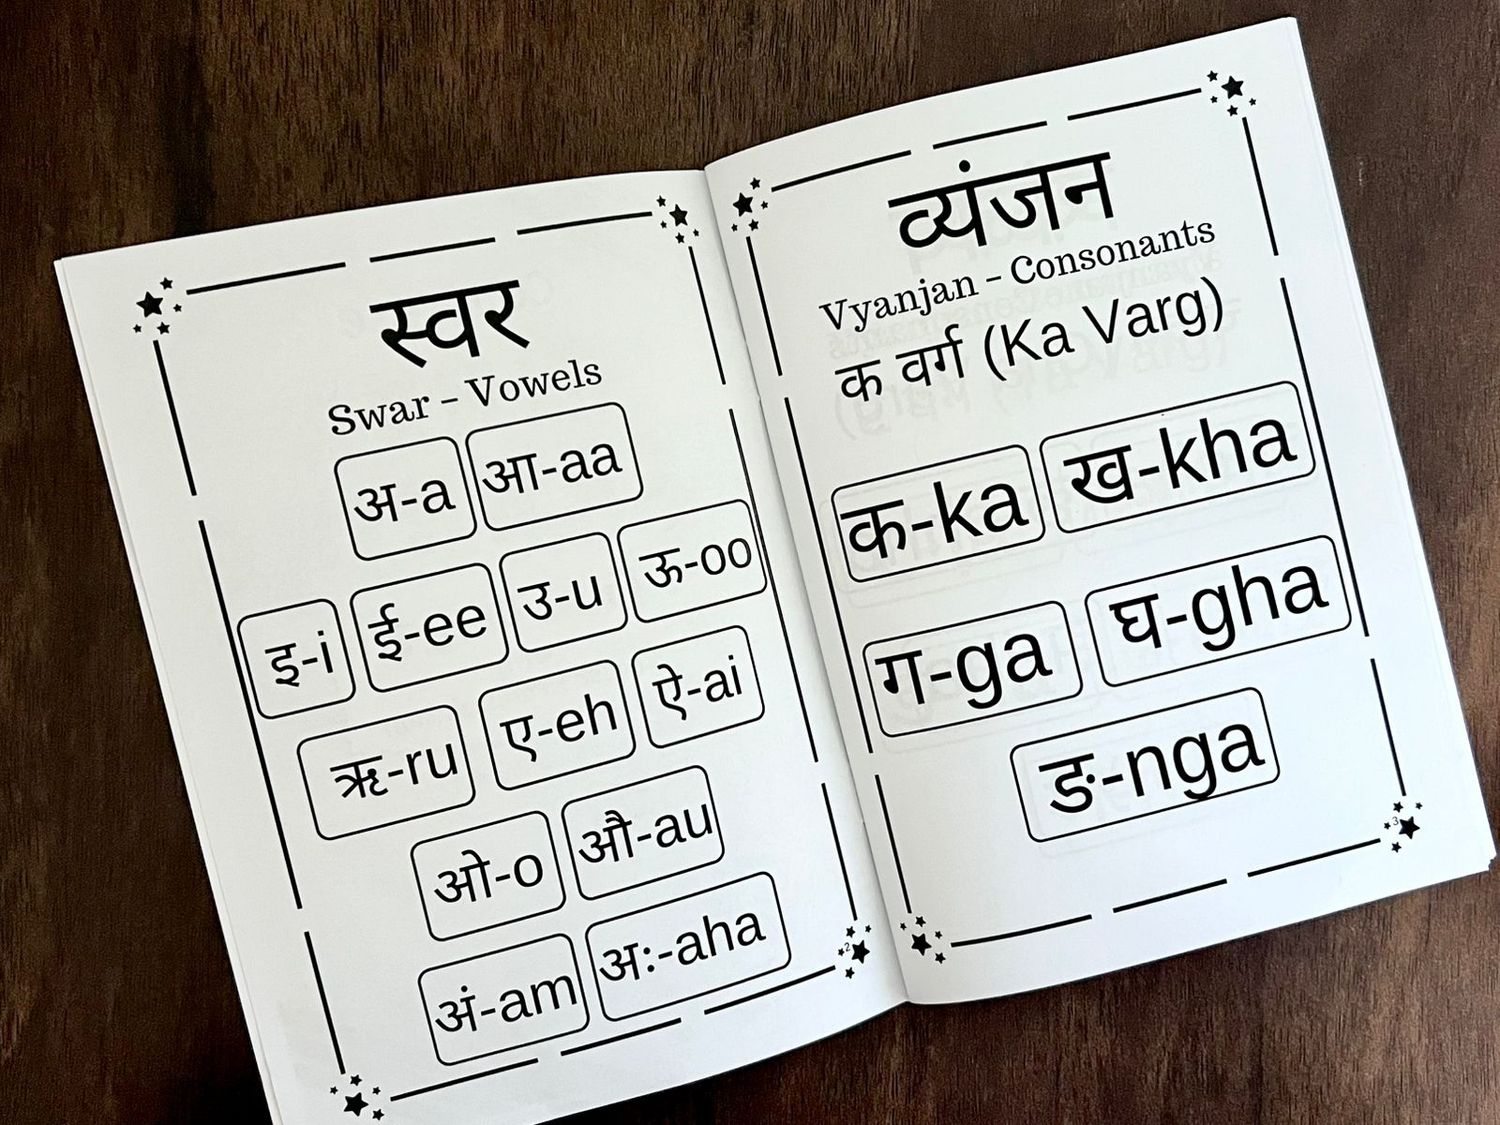 स्वर
Swar - Vowels
अ-a आ-aa
इ-i ई-ee उ-u ऊ-oo
ऋ-ru ए-eh ऐ-ai
ओ-o औ-au
अं-am अः-aha
2
व्यंजन
Vyanjan - Consonants
क वर्ग (Ka Varg)
क-ka ख-kha
ग-ga घ-gha
ङ-nga
3